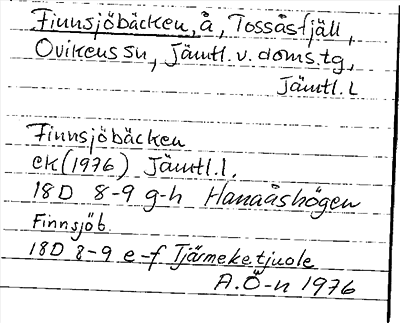 Finnsjöbäcken, å, Tossåsfjäll,
Ovikens sn, Jämtl. v. doms.tg,
Jämtl. L
Finnsjöbäcken
ek (1976) Jämtl. l.
18D 8-9 g-h Hanaåshögen
Finnsjöb
18D 8-9 e-f Tjärmeketjuole
A.Ö-n 1976